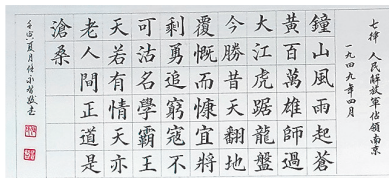 七律 人民解放軍佔領南京
一九四九年四月
鐘山風雨起蒼
黃百萬雄師過
大江虎踞龍盤
今勝昔天翻地
覆慨而慷宜將
剩勇追窮寇不
可沽名學霸王
天若有情天亦
老人間正道是
滄桑
壬寅夏月